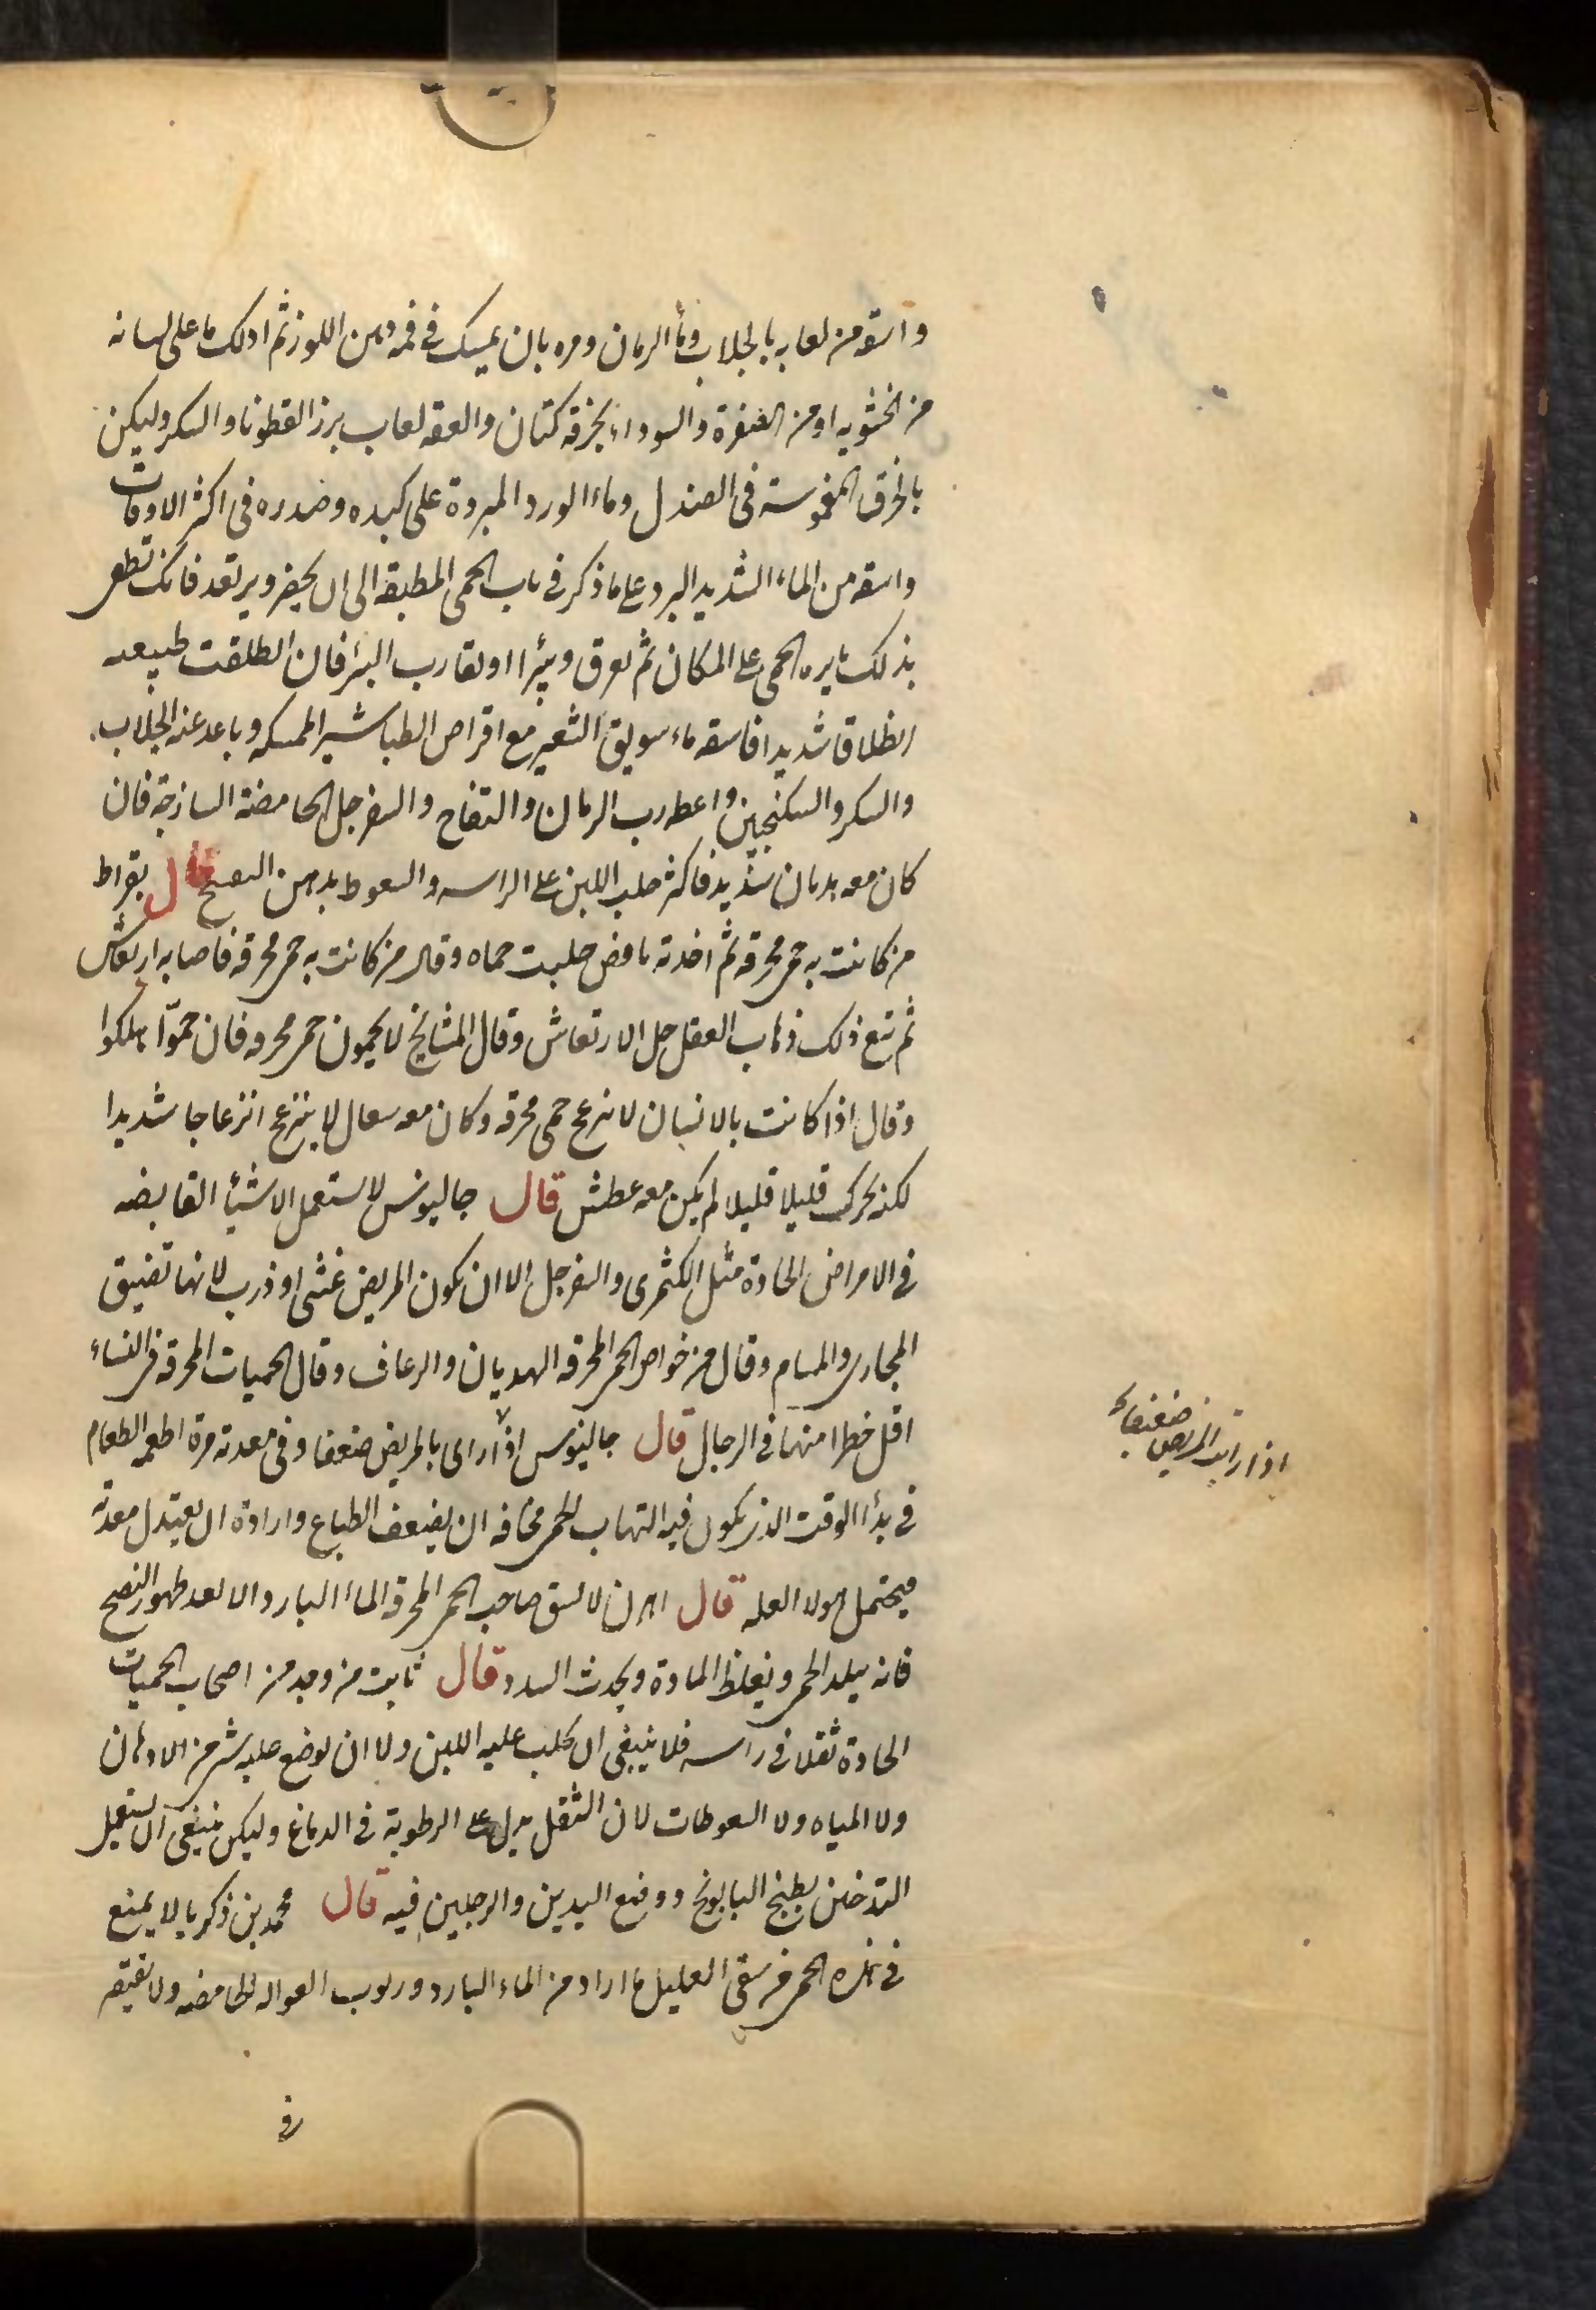 واسقه من لعابه بالجلاب وماء الرمان ومره بان يمسك في فمه دهن اللوز ثم ادلك ما على لسانه
من الخشونه او من الصفرة والسوداء بخرقه كتان والعقه لعاب بزر القطونا والسكر وليكن
بالخرق المغموسة فى الصندل وماء الورد المبردة على كبده وصدره فى اكثر الاوقات
واسقه من الماء الشديد البرد على ما ذكر فى باب الحمى المطبقه الى ان يخضر ويرتعد فانك تطفى
بذلك نايره الحمى على المكان ثم يعرق ويبرأ او يقارب البرء فان انطلقت طبيعته
انطلاقا شديدا فاسقه ماء سويق الشعير مع اقراص الطباشير الممسكه وباعد عنه الجلاب
والسكر والسكنجبين واعطه رب الرمان والتفاح والسفرجل الحامضة الساذجة فان
كان معه هذيان شديد فاكثر حلب اللبن على الراس والسعوط بدهن البنفسج قال بقراط
من كانت به حمى محرقه ثم اخذته نافض حلبت حماه وقال من كانت به حمى محرقه فاصابه ارتعاش
ثم تبع ذلك ذهاب العقل حل الارتعاش وقال المشايخ لا يحمون حمى محرقه فان حموا هلكوا
وقال اذا كانت بالانسان لا تزعج حمى محرقه وكان معه سعال لا ينزعج انزعاجا شديدا
لكنه يحرك قليلا قليلا لم يكن معه عطش قال جالينوس لا تستعمل الاشياء القابضه
فى الامراض الحادة مثل الكمثرى والسفرجل الا ان يكون المريض غشى او ذرب لانها تضيق
المجارى والمسام وقال من خواص الحمى المحرقه الهذيان والرعاف وقال الحميات المحرقه فى النساء
اقل خطرا منها فى الرجال قال جالينوس اذا راى بالمريض ضعفا وفى معدته مرة اطعمه الطعام
فى بدأ الوقت الذى يكون فيه التهاب الحمى مخافه ان يضعف الطباع وارادة ان يعتدل معدته
فيحتمل العله قال اهرن لا تسق صاحب الحمى المحرقه الماء البارد الا بعد ظهور النضج
فانه يبلد الحمى ويغلظ المادة ويحدث السدد قال ثابت من وجد من اصحاب الحميات
الحادة ثقلا فى راسه فلا ينبغى ان يحلب عليه اللبن ولا ان يوضع عليه شى من الادهان
ولا المياه ولا السعوطات لان الثقل يدل على الرطوبة فى الدماغ وليكن ينبغى ان يستعمل
التدخين بطبيخ البابونج ووضع اليدين والرجلين فيه قال محمد بن زكريا لا يمنع
فى هذه الحمى من سقى العليل ما اراد من الماء البارد وربوب الفواكه الحامضه ولا يقتصر
فى
اذا رايت المريض ضعفاء